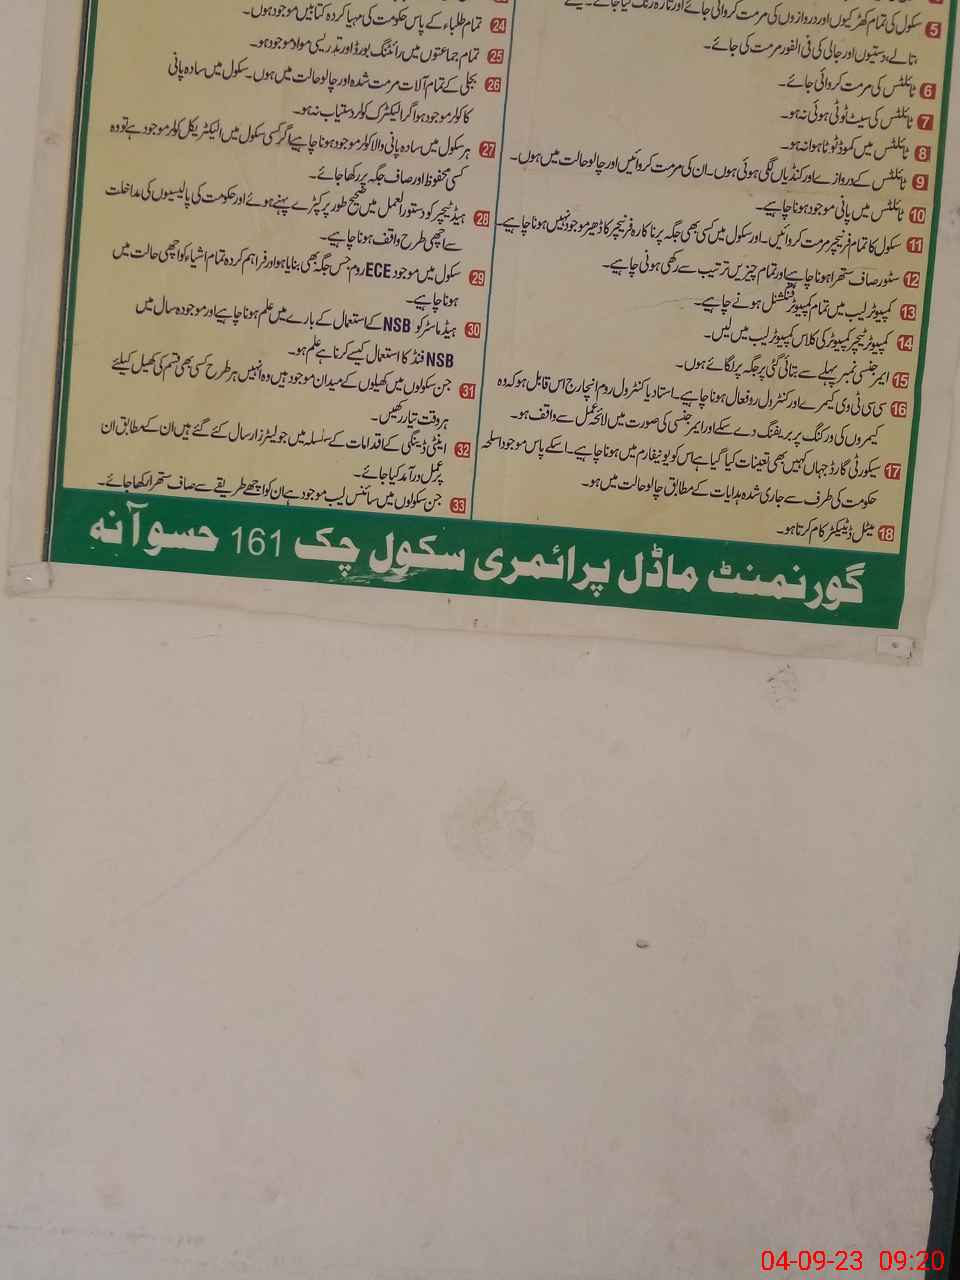 سکول کی تمام کھڑکیوں اور دروازوں کی مرمت کروائی جائے اور تازہ رنگ کیا جائے۔
5 تالے، دستیوں اور جالی کی فی الفور مرمت کی جائے۔
6 ٹائلٹس کی مرمت کروائی جائے۔
7 ٹائلٹس کی سیٹ ٹوٹی ہوئی نہ ہو۔
8 ٹائلٹس میں کموڈ ٹوٹا ہوا نہ ہو۔
9 ٹائلٹس کے دروازے اور کنڈیاں لگی ہوئی ہوں۔ ان کی مرمت کروائیں اور چالو حالت میں ہوں۔
10 ٹائلٹس میں پانی موجود ہونا چاہیے۔
11 سکول کا تمام فرنیچر مرمت کروائیں۔ اور سکول میں کسی بھی جگہ پر ناکارہ فرنیچر کا ڈھیر موجود نہیں ہونا چاہیے۔
12 سٹور صاف ستھرا ہونا چاہیے اور تمام چیزیں ترتیب سے رکھی ہونی چاہیے۔
13 کمپیوٹر لیب میں تمام کمپیوٹر فنکشنل ہونے چاہیے۔
14 کمپیوٹر ٹیچر کمپیوٹر کی کلاس کمپیوٹر لیب میں لیں۔
15 ایمرجنسی نمبر پہلے سے بتائی گئی ہر جگہ پر لگائے ہوں۔
16 سی سی ٹی وی کیمرے اور کنٹرول روم فعال ہونا چاہیے۔ استاد یا کنٹرول روم انچارج اس قابل ہو کہ وہ
کیمروں کی ورکنگ پر بریفنگ دے سکے اور ایمرجنسی کی صورت میں لائحہ عمل سے واقف ہو۔
17 سیکورٹی گارڈ جہاں کہیں بھی تعینات کیا گیا ہے اس کو یونیفارم میں ہونا چاہیے۔ اسکے پاس موجود اسلحہ
حکومت کی طرف سے جاری شدہ ہدایات کے مطابق چالو حالت میں ہو۔
18 میٹل ڈیٹیکٹر کام کرتا ہو۔
24 تمام طلباء کے پاس حکومت کی مہیا کردہ کتابیں موجود ہوں۔
25 تمام جماعتوں میں رائٹنگ بورڈ اور تدریسی مواد موجود ہو۔
26 بجلی کے تمام آلات مرمت شدہ اور چالو حالت میں ہوں۔ سکول میں سادہ پانی
کا کولر موجود ہو اگر الیکٹرک کولر دستیاب نہ ہو۔
27 ہر سکول میں سادہ پانی والا کولر موجود ہونا چاہیے اگر کسی سکول میں الیکٹریکل کولر موجود ہے تو وہ
کسی محفوظ اور صاف جگہ پر رکھا جائے۔
28 ہیڈ ٹیچر کو دستور العمل میں صحیح طور پر کپڑے پہنے ہوئے اور حکومت کی پالیسیوں کی مداخلت
سے اچھی طرح واقف ہونا چاہیے۔
29 سکول میں موجود ECE روم جس جگہ بھی بنایا ہو اور فراہم کردہ تمام اشیاء کو اچھی حالت میں
ہونا چاہیے۔
30 ہیڈ ماسٹر کو NSB کے استعمال کے بارے میں علم ہونا چاہیے اور موجودہ سال میں
NSB فنڈ کا استعمال کیسے کرنا ہے علم ہو۔
31 جن سکولوں میں کھیلوں کے میدان موجود ہیں وہ انہیں ہر طرح کسی بھی قسم کی کھیل کیلئے
ہر وقت تیار رکھیں۔
32 اینٹی ڈینگی کے اقدامات کے سلسلہ میں جو لیٹرز ارسال کئے گئے ہیں ان کے مطابق ان
پر عمل درآمد کیا جائے۔
33 جن سکولوں میں سائنس لیب موجود ہے ان کو اچھے طریقے سے صاف ستھرا رکھا جائے۔
گورنمنٹ ماڈل پرائمری سکول چک 161 حسوآنہ
04-09-23 09:20